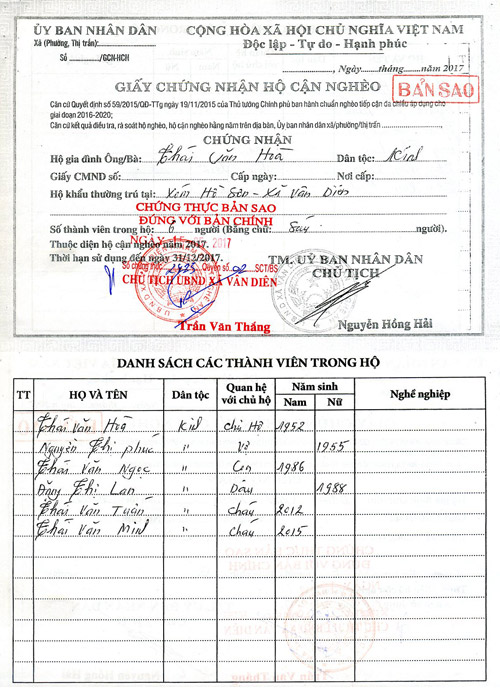 ỦY BAN NHÂN DÂN
Xã (Phường, Thị trấn):
Số ......../GCN-HCN
CỘNG HÒA XÃ HỘI CHỦ NGHĨA VIỆT NAM
Độc lập - Tự do - Hạnh phúc
, Ngày.......tháng.......năm 2017
GIẤY CHỨNG NHẬN HỘ CẬN NGHÈO
BẢN SAO
Căn cứ Quyết định số 59/2015/QĐ-TTg ngày 19/11/2015 của Thủ tướng Chính phủ ban hành chuẩn nghèo tiếp cận đa chiều áp dụng cho
giai đoạn 2016-2020;
Căn cứ kết quả điều tra, rà soát hộ nghèo, hộ cận nghèo hằng năm trên địa bàn, Ủy ban nhân dân xã/phường/thị trấn
CHỨNG NHẬN
Hộ gia đình Ông/Bà: Thái Văn Hoà Dân tộc: Kinh
Giấy CMND số: Cấp ngày: Nơi cấp:
Hộ khẩu thường trú tại: Xóm Hồ Sen - Xã Vân Diên
CHỨNG THỰC BẢN SAO
ĐÚNG VỚI BẢN CHÍNH
Số thành viên trong hộ: 6 người (Bằng chữ: Sáu người).
NGÀY 2017
Thuộc diện hộ cận nghèo năm 2017.
Thời hạn sử dụng đến ngày 31/12/2017.
Số chứng thực Quyển số 02 SCT/BS
CHỦ TỊCH UBND XÃ VÂN DIÊN
Trần Văn Thắng
TM. UỶ BAN NHÂN DÂN
CHỦ TỊCH
Nguyễn Hồng Hải
DANH SÁCH CÁC THÀNH VIÊN TRONG HỘ
TT HỌ VÀ TÊN Dân tộc Quan hệ với chủ hộ Năm sinh Nam Nữ Nghề nghiệp
Thái Văn Hoà Kinh Chủ Hộ 1952
Nguyễn Thị Phúc " Vợ 1955
Thái Văn Ngọc " Con 1986
Đặng Thị Lan " Dâu 1988
Thái Văn Tuấn " Cháu 2012
Thái Văn Minh " Cháu 2015